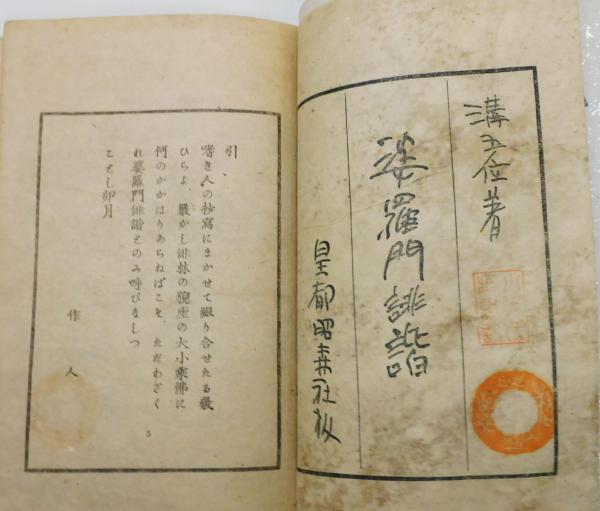 溝五位著
婆羅門誹諧
皇都昭森社板
引
嗜き人の抄寫にまかせて綴り合せたる數
ひらよ、嚴かし俳林の猊座の大小乘佛に
何のかかはりあらねばこそ、ただわざく
れ婆羅門俳諧とのみ呼びなしつ
ことし卯月
作人